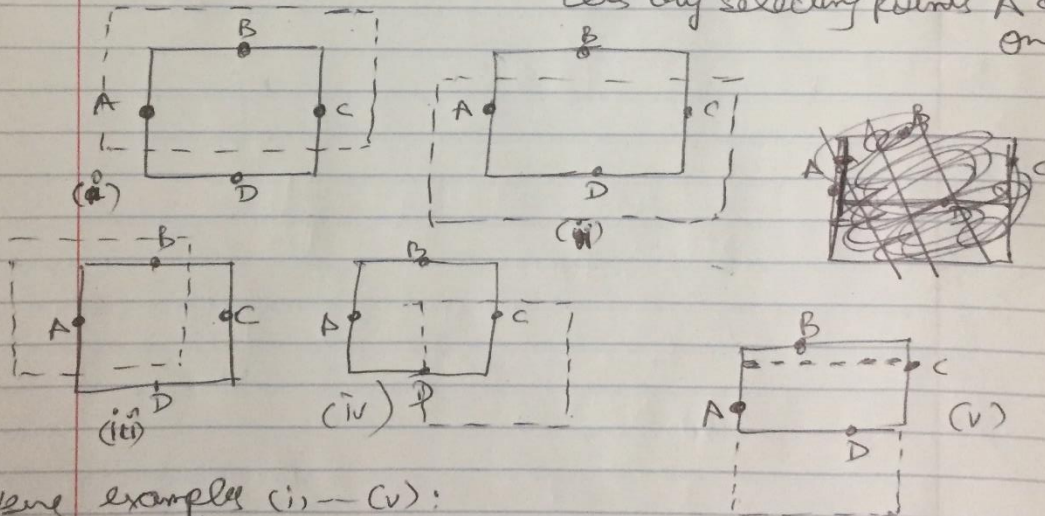 by selecting points A
on
B
A
C
D
(i)
B
A
C
D
(ii)
B
A
C
D
(iii)
B
A
C
P
(iv)
B
A
C
D
(v)
A
B
C
examples (i) -- (v):